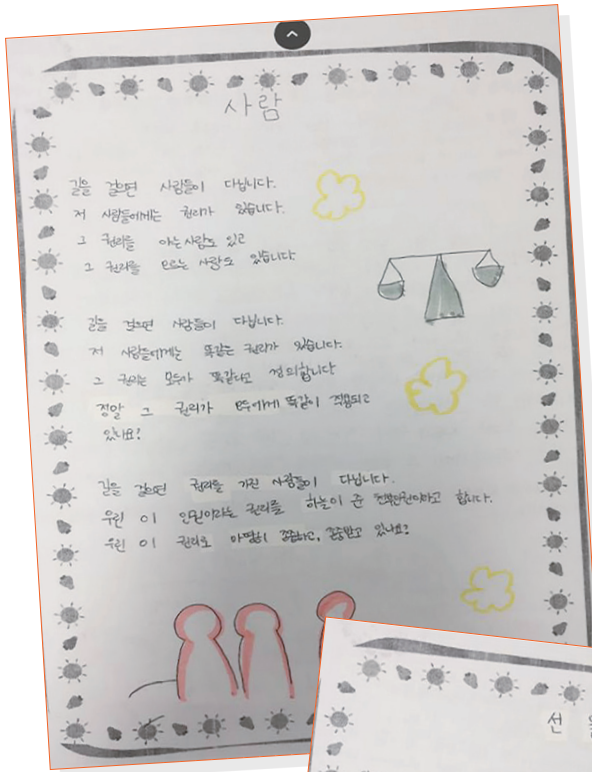 사람
길을 걸으면 사람들이 다닙니다.
저 사람들에게는 권리가 있습니다.
그 권리를 아는 사람도 있고
그 권리를 모르는 사람도 있습니다
길을 걸으면 사람들이 다닙니다.
저 사람들에게는 똑같은 권리가 있습니다.
그 권리는 모두가 똑같다고 정의합니다
정말 그 권리가 모두에게 똑같이 적용되고
있나요?
길을 걸으면 권리를 가진 사람들이 다닙니다.
우린 이 인권이라는 권리를 하늘이 준 천부인권이라고 합니다.
우린 이 권리로 마땅히 존중하고, 존중받고 있나요?
선